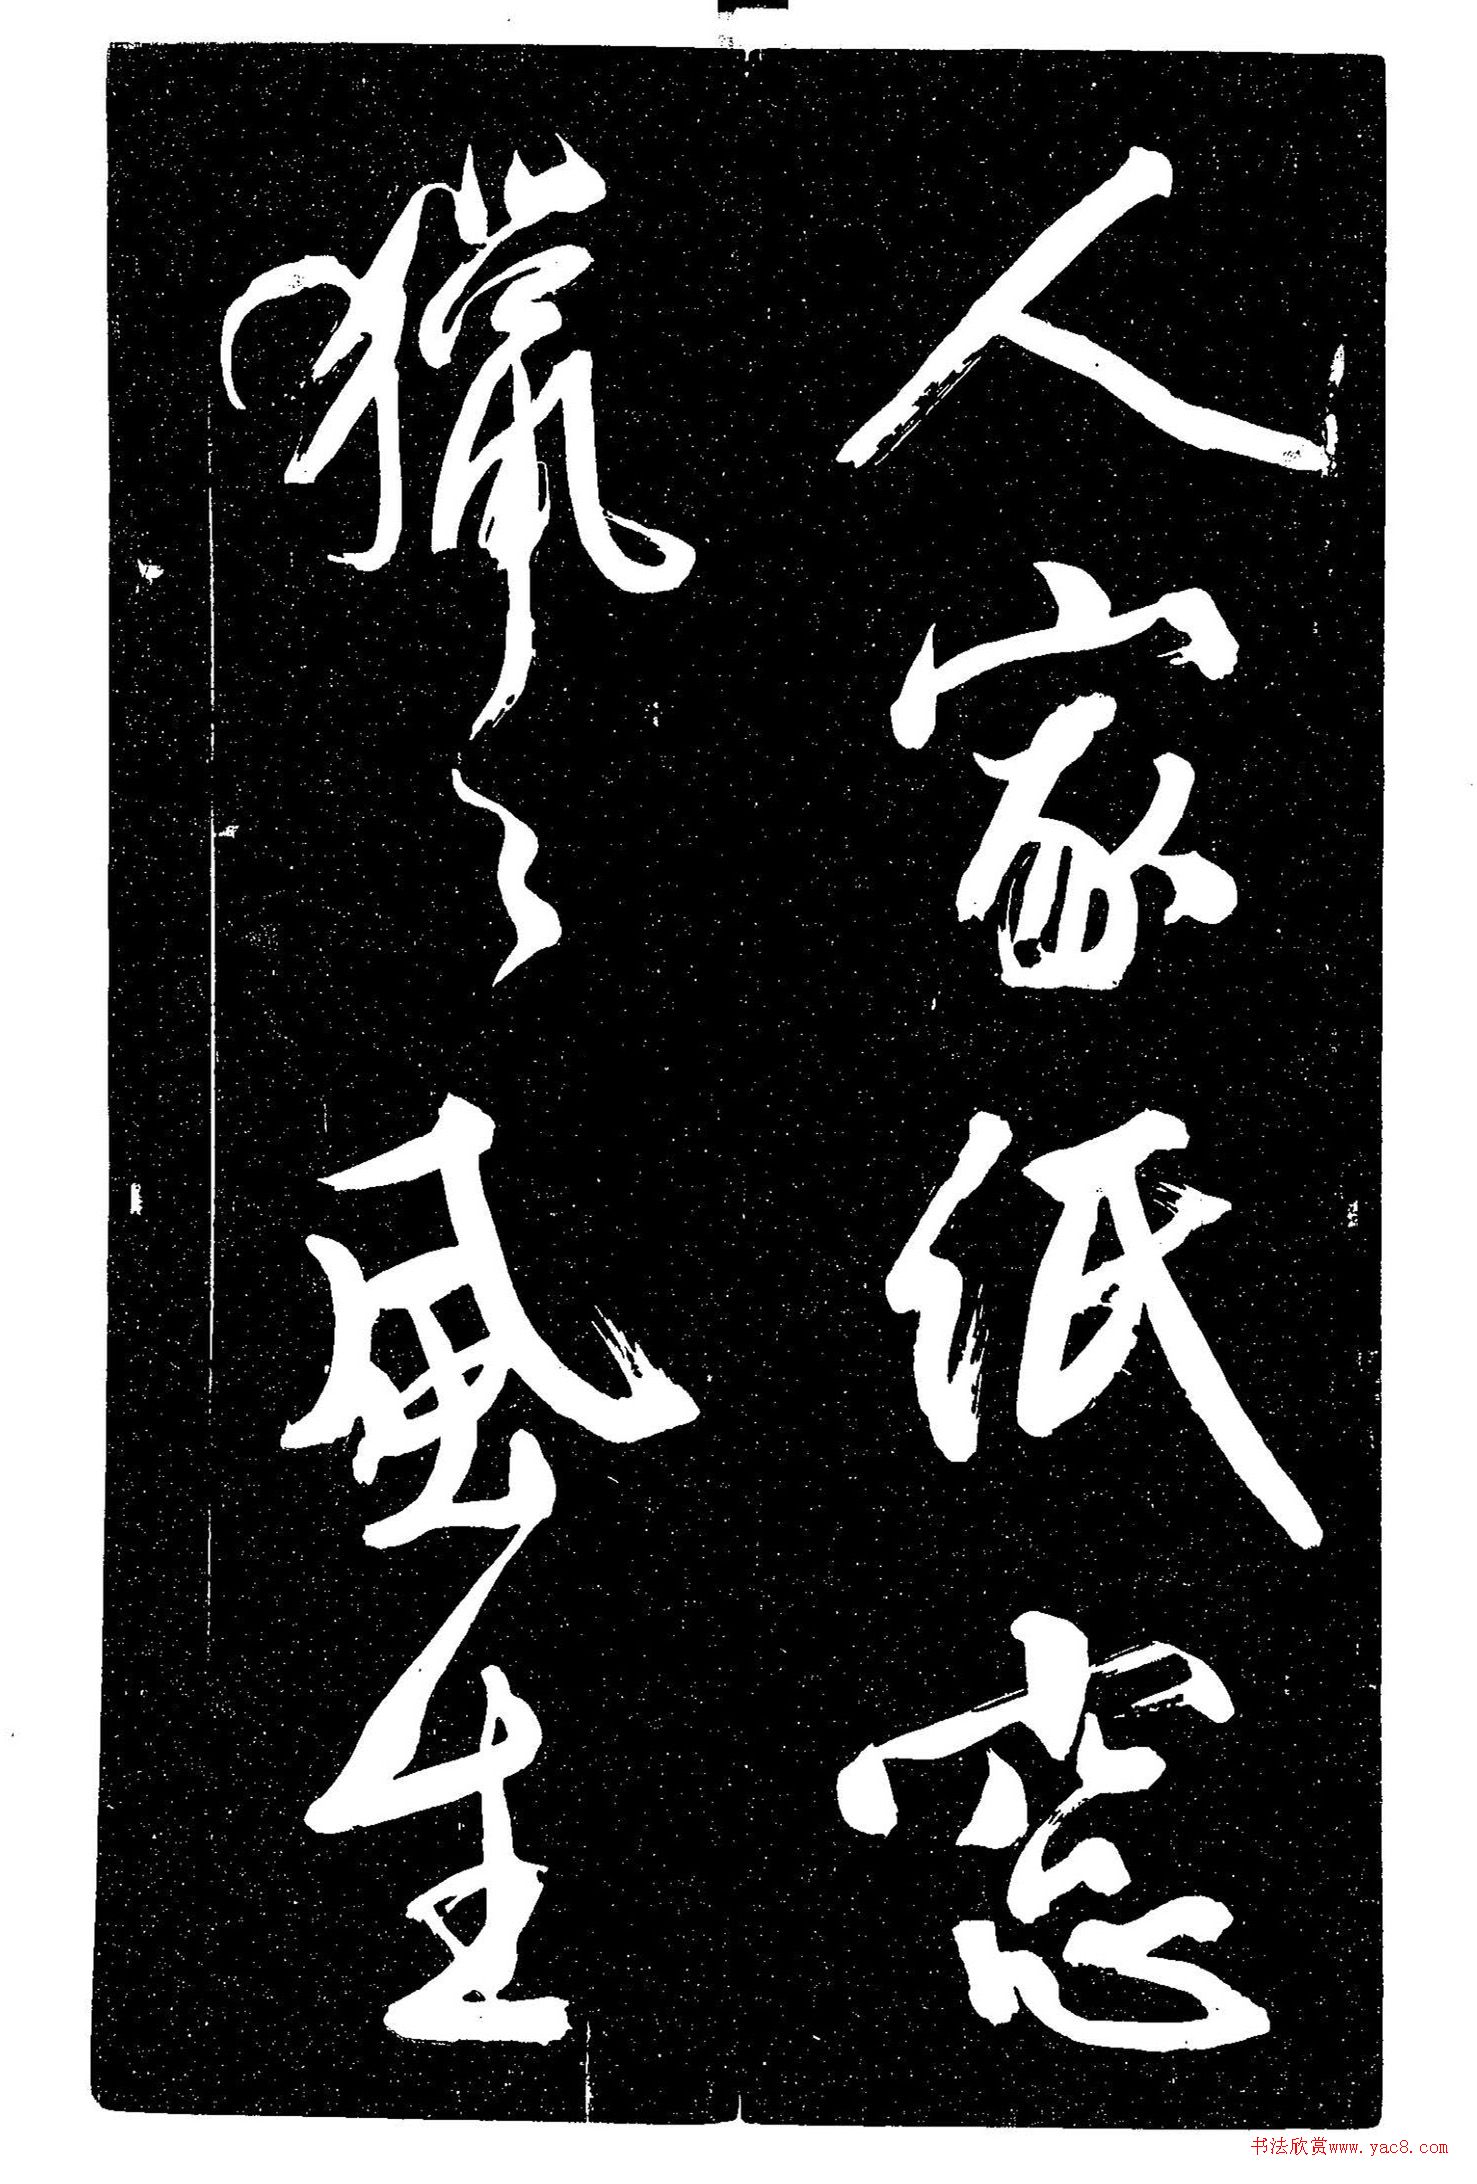 人家纸窓
獵〻風生
书法欣赏www.yac8.com